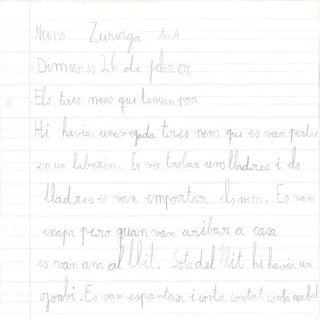 Nuno Zuriaga 1r A
Dimecres 26 de febrer
Els tres nens que tenian por
Hi havia una vegada tres nens que es van pedre
en un laberin. Es va trobar uns lladres i els
lladres es van emportar els nens. Es van
exapa pero quan van aribar a casa
es van ana al llit. Sota del llit hi havia un
zombi. Es van espantar i conta contat conta acabat